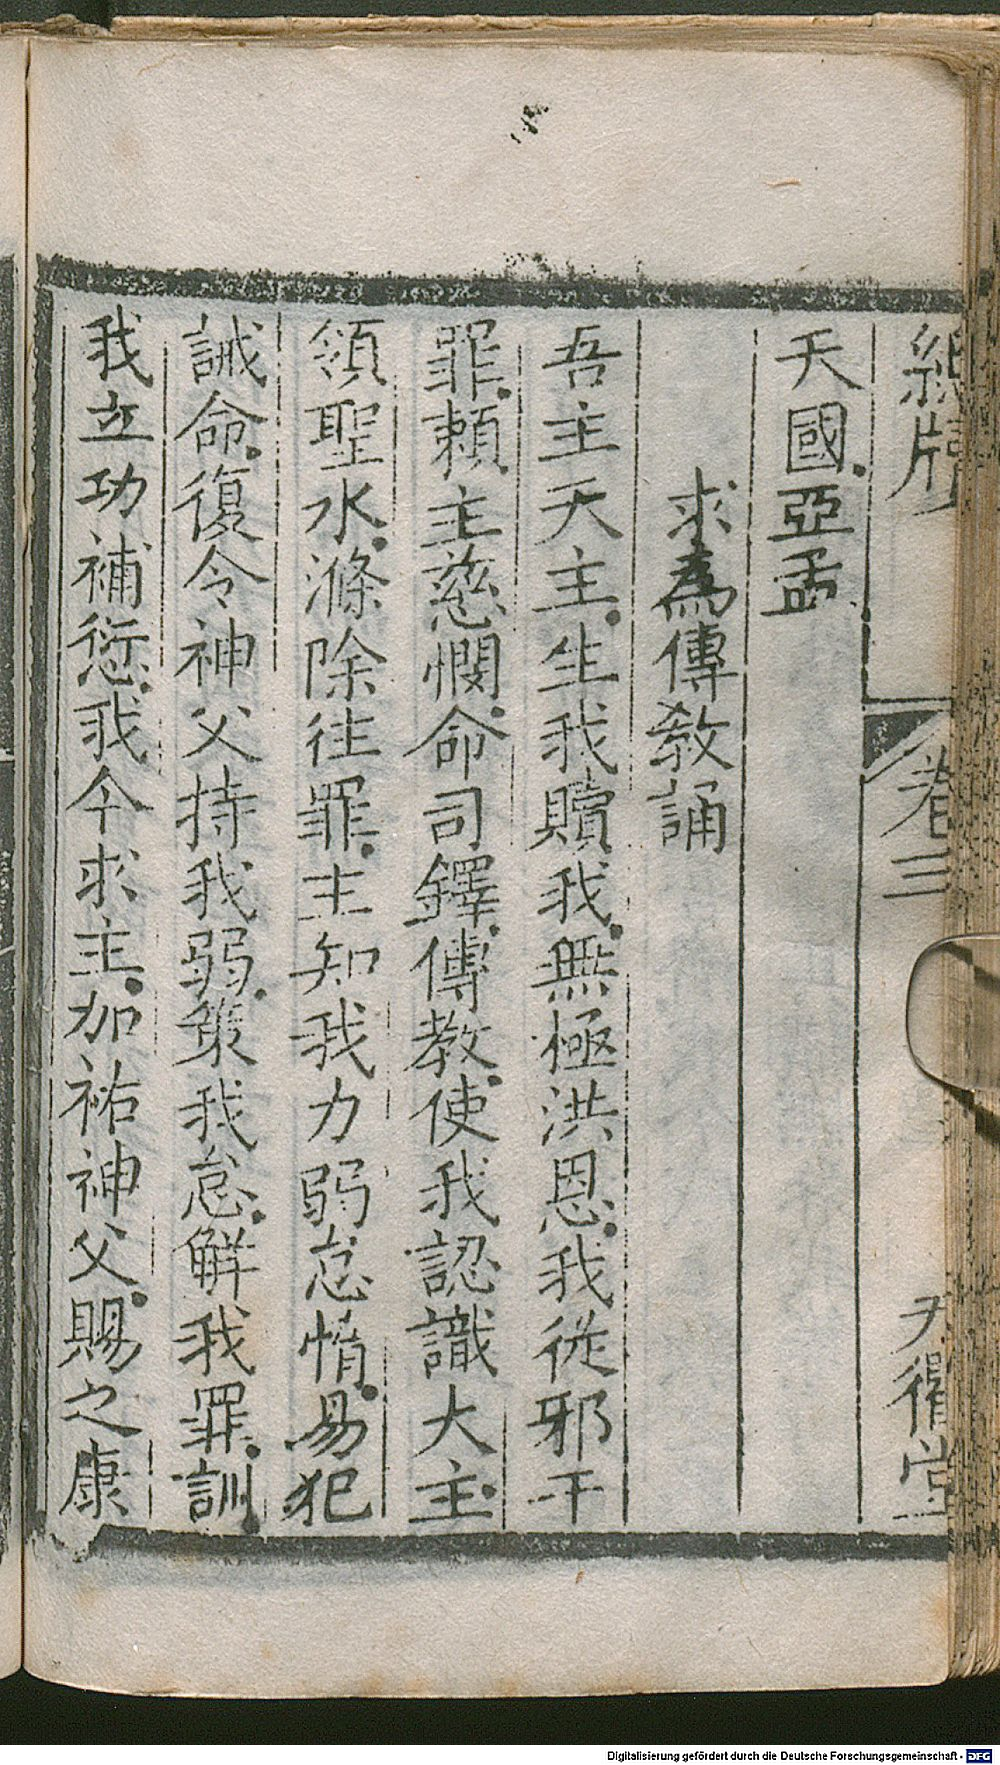 卷三
天國。亞孟
求為傳敎誦
吾主天主。生我贖我。無極洪恩。我從邪干
罪。賴主慈憫。命司鐸。傳教。使我認識大主。
領聖水。滌除往罪。主知我力弱怠惰。易犯
誡命。復令神父持我弱。策我怠。解我罪。訓
我立功補愆。我今求主。加祐神父。賜之康
Digitalisierung gefördert durch die Deutsche Forschungsgemeinschaft - DFG